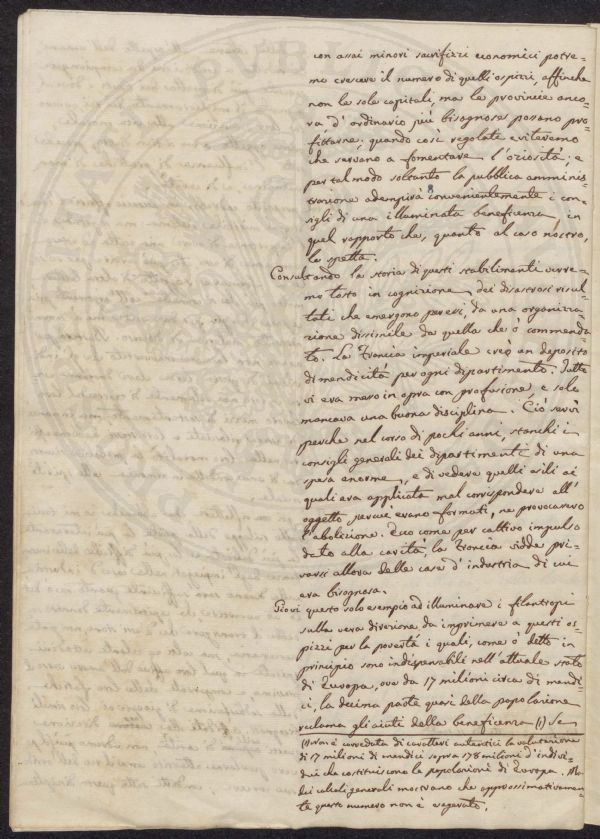 con assai minori sacrifizi economici potre-
mo crescere il numero di quelli ospizi, affinche
non le sole capitali, ma le provincie anco-
ra d'ordinario più bisognose possano pro-
fittarne; quando così regolati eviteremo
che servano a fomentare l'oriosità; e
per tal modo soltanto la pubblica amminis-
trazione adempirà convenientemente i con-
sigli di una illuminata beneficenza, in
quel rapporto che, quanto al caso nostro,
le spetta.
Consultando la storia di questi stabilimenti verre-
mo tosto in cognizione dei disastrosi risul-
tati che emergono per essi, da una organizza-
zione dissimile da quella che ò commenda-
to. La Francia imperiale creò un deposito
di mendicità per ogni dipartimento. Tutto
vi era messo in opra con profusione, e solo
mancava una buona disciplina. Ciò servì
perche nel corso di pochi anni, stanchi i
consigli generali dei dipartimenti di una
spesa enorme, e di vedere quelli asili ai
quali era applicata mal corrispondere all'
oggetto percui erano formati, ne provocarono
l'abolizione. Ecco come per cattivo impulso
dato alla carità, la Francia vidde pri-
varsi allora delle case d'industria di cui
era bisognosa.
Giovi questo solo esempio ad illuminare i filantropi
sulla vera direzione da imprimere a questi os-
pizzi per la povertà i quali, come ò detto in
principio sono indispensabili nell'attuale stato
di Europa, ove da 17 milioni circa di mendi-
ci, la decima parte quasi della popolazione
reclama gli aiuti della beneficenza (1) Se
(1) Non è corredata di caratteri autentici la valutazione
di 17 milioni di mendici sopra 178 milioni d'indivi-
dui che costituiscono la popolazione di Europa. Ma
dei calcoli generali mostrano che approssimativamen-
te questo numero non è esagerato.